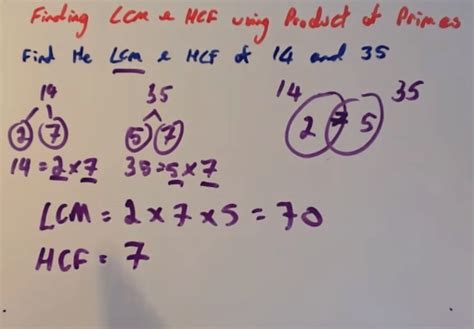 Finding LCM & HCF using Product of Primes
Find the LCM & HCF of 14 and 35
14 35 14 35
2 7 5 7 2 7 5
14 = 2 x 7 35 = 5 x 7
LCM = 2 x 7 x 5 = 70
HCF = 7